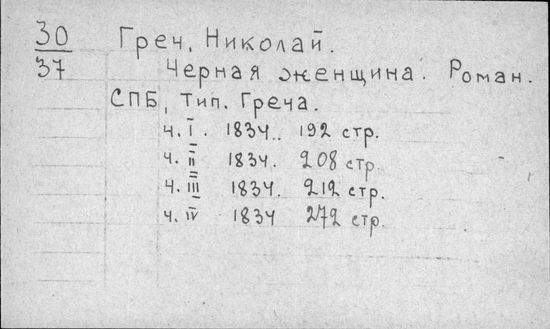 30 Греч, Николай.
37 Черная женщина. Роман.
СПБ, Тип. Греча.
ч. I. 1834. 192 стр.
ч. II 1834. 208 стр.
ч. III 1834. 212 стр.
ч. IV 1834 272 стр.